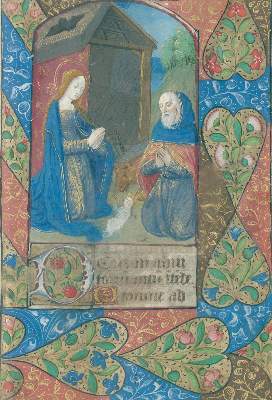 DEus in adiu
torium meum inte
Domine ad